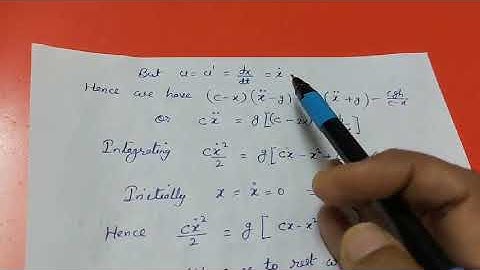 But u = u' = dx/dt = ẋ
Hence we have (c-x)(ẍ-g) (ẍ+g) - cgh/c-x
or cẍ = g[(c-2x)
Integrating cẋ²/2 = g[cx-x²
Initially x = ẋ = 0
Hence cẋ²/2 = g[cx-x²
to rest